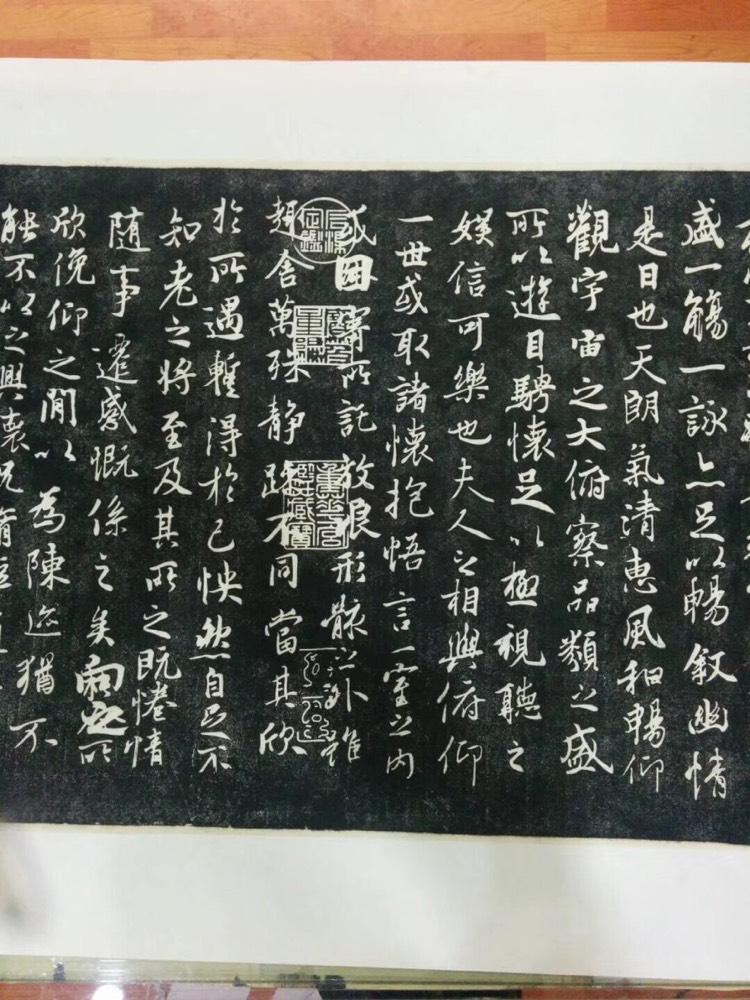 盛一觴一詠亦足以暢敘幽情
是日也天朗氣清惠風和暢仰
觀宇宙之大俯察品類之盛
所以遊目騁懷足以極視聽之
娛信可樂也夫人之相與俯仰
一世或取諸懷抱悟言一室之內
或因寄所託放浪形骸之外雖
趣舍萬殊靜躁不同當其欣
於所遇暫得於己快然自足不
知老之將至及其所之既惓情
隨事遷感慨係之矣向之所
欣俛仰之閒以為陳迹猶不
能不以之興懷況脩短